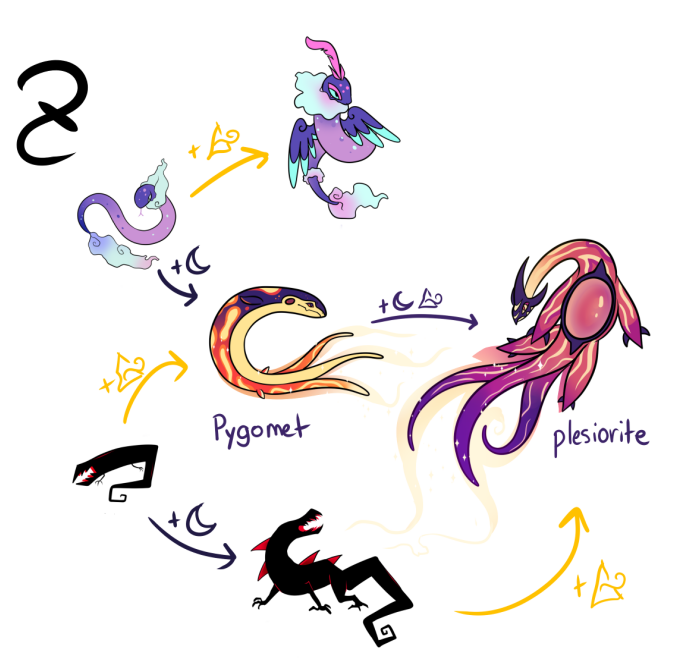 +
+
+
+
Pygomet
plesiorite
+
+